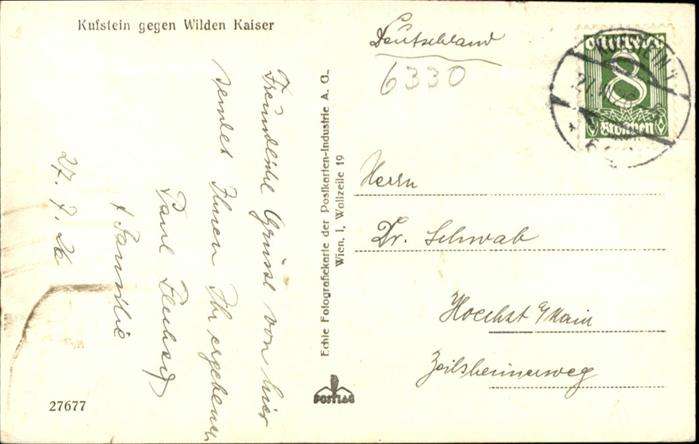 Kufstein gegen Wilden Kaiser
Deutschland
6330
8
Kronen
Freundliche Grüsse von hier
sendet Ihnen Ihr ergebener
Paul
+ Familie
27. 7. 26
Echte Fotografiekarte der Postkarten-Industrie A. G.
Wien, I, Wollzeile 19
Herrn
Dr. Schwab
Hoechst a/Main
Zeilsheimerweg
POSTIAG
27677